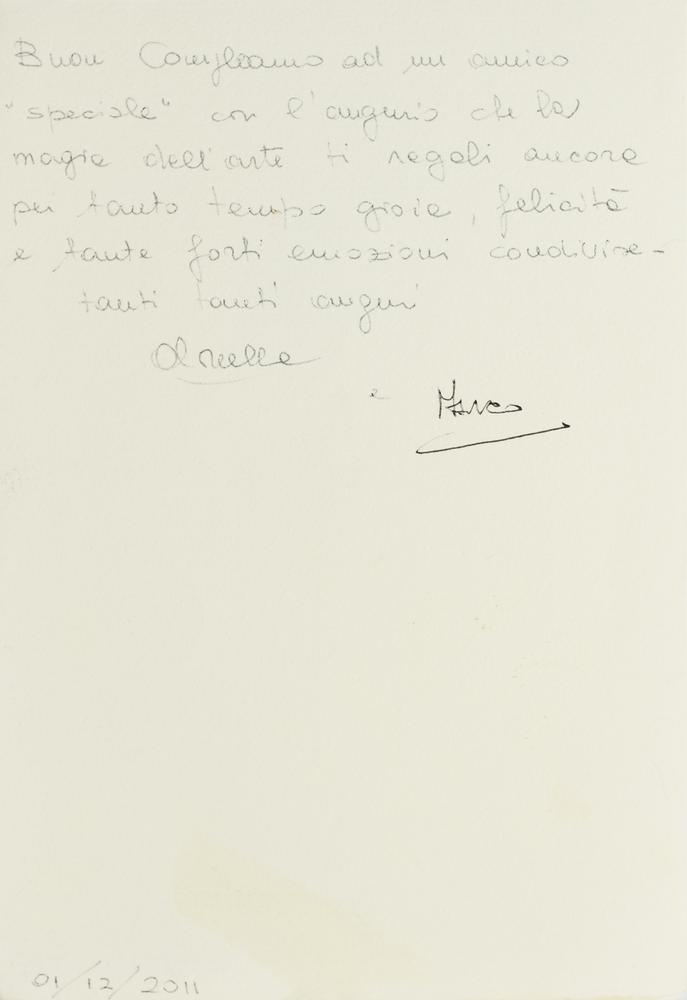 Buon Compleanno ad un amico
"speciale" con l'augurio che la
magia dell'arte ti regali ancora
per tanto tempo gioia, felicità
e tante forti emozioni condivise -
tanti tanti auguri
Ornella
e Marco
01/12/2011